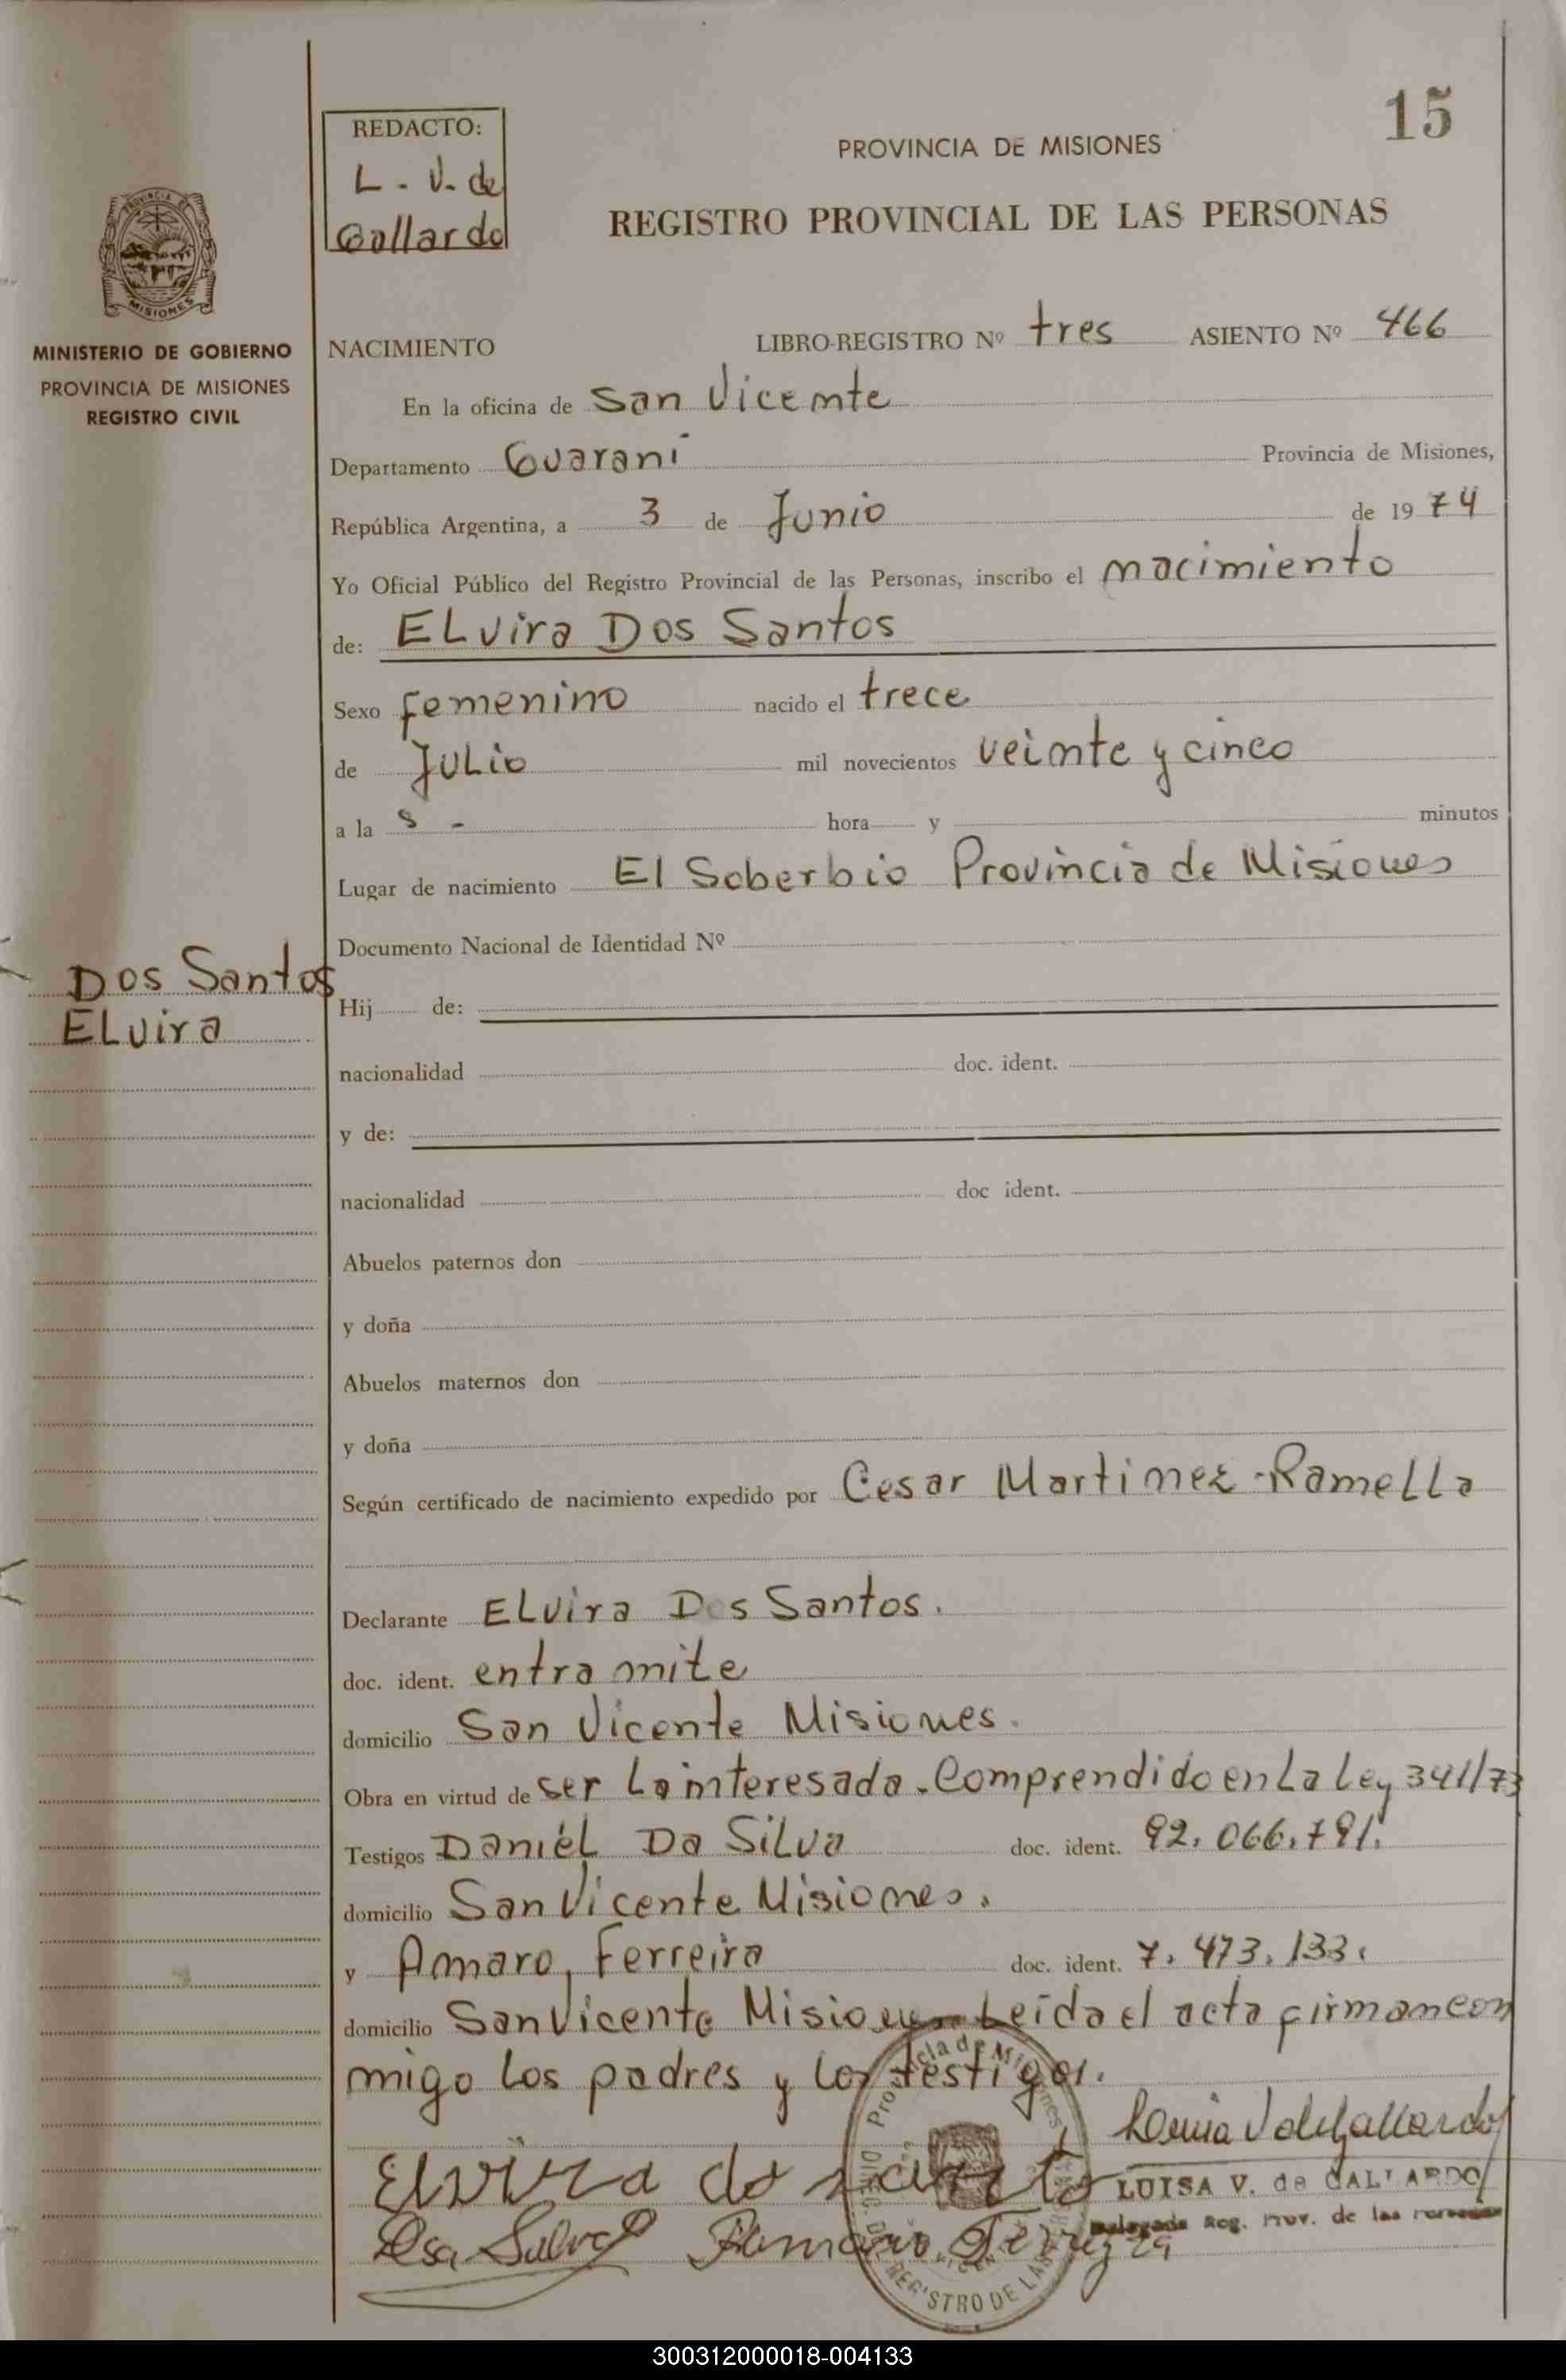 15
REDACTO:
L. V. de
Gallardo
PROVINCIA DE MISIONES
REGISTRO PROVINCIAL DE LAS PERSONAS
MISIONES
MINISTERIO DE GOBIERNO
PROVINCIA DE MISIONES
REGISTRO CIVIL
NACIMIENTO LIBRO-REGISTRO Nº tres ASIENTO Nº 466
En la oficina de San Vicente
Departamento Guarani Provincia de Misiones,
República Argentina, a 3 de Junio de 1974
Yo Oficial Público del Registro Provincial de las Personas, inscribo el nacimiento
de: ELvira Dos Santos
Sexo femenino nacido el trece
de JULio mil novecientos veinte y cinco
a la 8 - hora y minutos
Lugar de nacimiento El Soberbio Provincia de Misiones
Documento Nacional de Identidad Nº
Dos Santos
ELvira
Hij de:
nacionalidad doc. ident.
y de:
nacionalidad doc ident.
Abuelos paternos don
y doña
Abuelos maternos don
y doña
Según certificado de nacimiento expedido por Cesar Martinez Ramella
Declarante ELvira Dos Santos.
doc. ident. entramite
domicilio San Vicente Misiones.
Obra en virtud de ser La interesada. Comprendido en La Ley 341/73
Testigos Daniel Da Silva doc. ident. 92.066.791.
domicilio San Vicente Misiones.
y Amaro, Ferreira doc. ident. 7.473.133.
domicilio San Vicente Misiones Leida el acta firman con
migo los padres y los testigos.
Elvira do santo
LUISA V. de GALLARDO
Delegada Reg. Prov. de las Personas
REGISTRO DE LAS
300312000018-004133